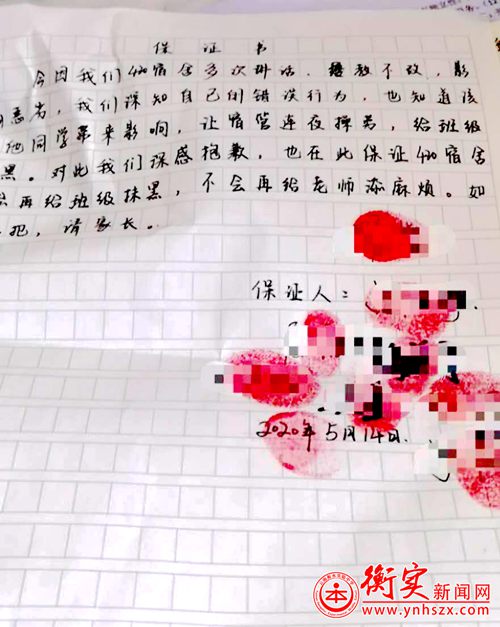 保证书
今因我们420宿舍多次讲话,屡教不改,影
恶劣,我们深知自己的错误行为,也知道该
他同学带来影响,让宿管连夜操劳,给班级
黑。对此我们深感抱歉,也在此保证420宿舍
再给班级抹黑,不会再给老师添麻烦。如
犯,请家长。
保证人:
2020年5月14日.
衡实新闻网
www.ynhszx.com